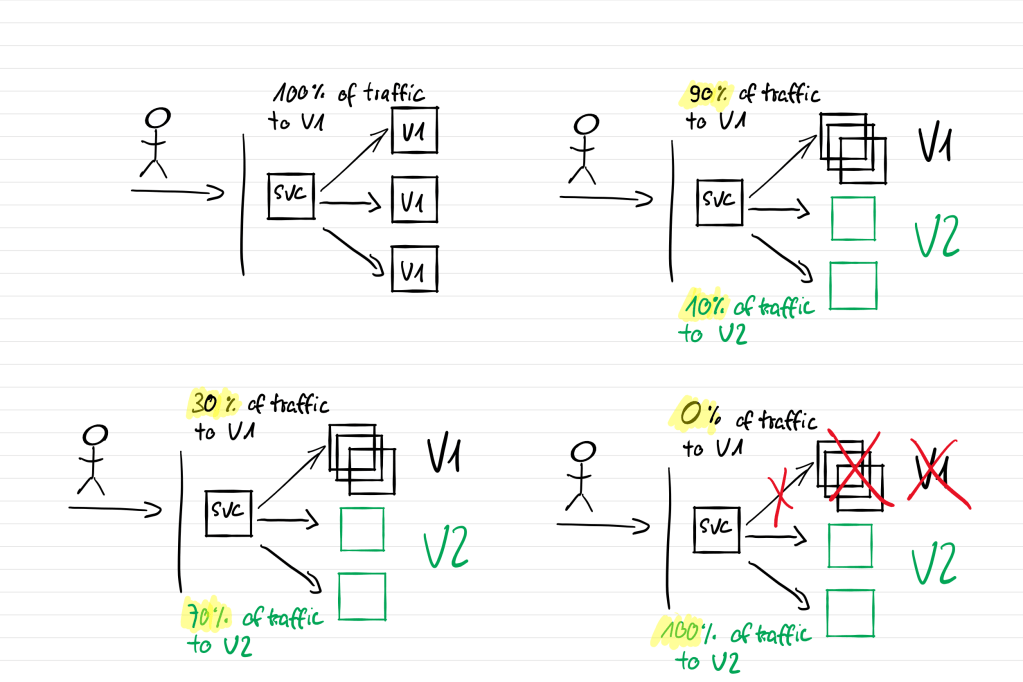 100% of traffic
to V1
V1
SVC
V1
V1
90% of traffic
to V1
V1
SVC
V2
10% of traffic
to V2
30% of traffic
to V1
V1
SVC
V2
70% of traffic
to V2
0% of traffic
to V1
V1
SVC
V2
100% of traffic
to V2